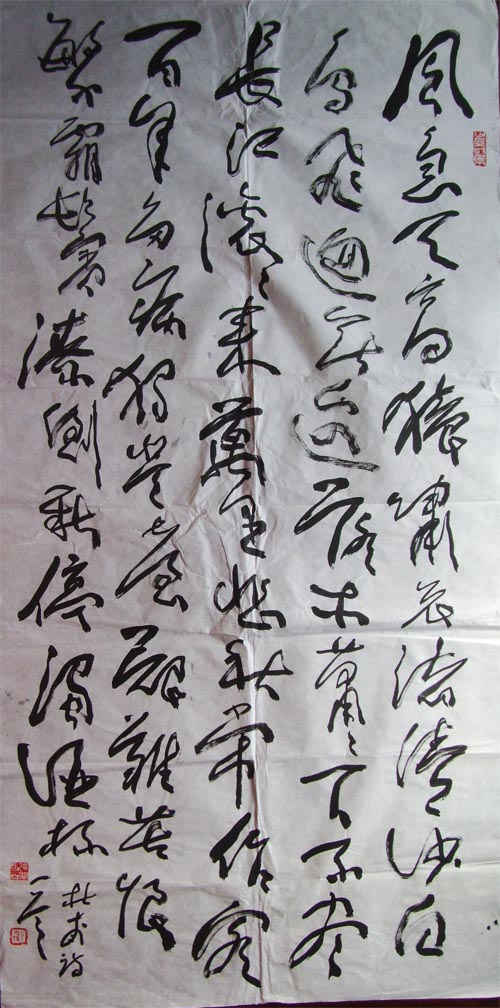 風急天高猿嘯哀渚清沙白
鳥飛迴無邊落木蕭蕭下不盡
長江滾滾來萬里悲秋常作客
百年多病獨登臺艱難苦恨
繁霜鬢潦倒新停濁酒杯
杜甫詩